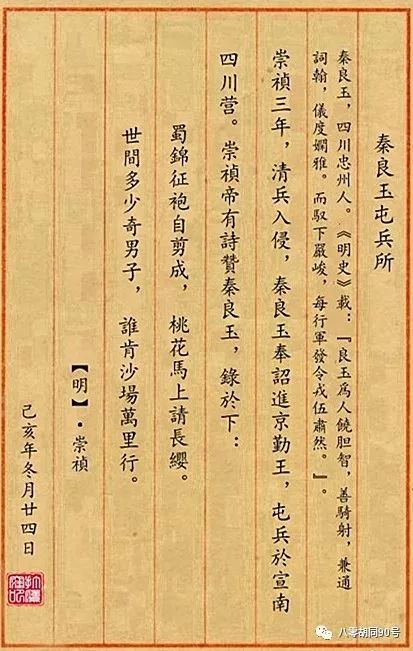 秦良玉屯兵所
秦良玉，四川忠州人。《明史》載：『良玉爲人饒胆智，善騎射，兼通
詞翰，儀度嫻雅。而馭下嚴峻，每行軍發令戎伍肅然。』。
崇禎三年，清兵入侵，秦良玉奉詔進京勤王，屯兵於宣南
四川营。崇禎帝有詩贊秦良玉，錄於下：
蜀錦征袍自剪成，桃花馬上請長纓。
世間多少奇男子，誰肯沙場萬里行。
【明】·崇禎
己亥年冬月廿四日
八零胡同90号